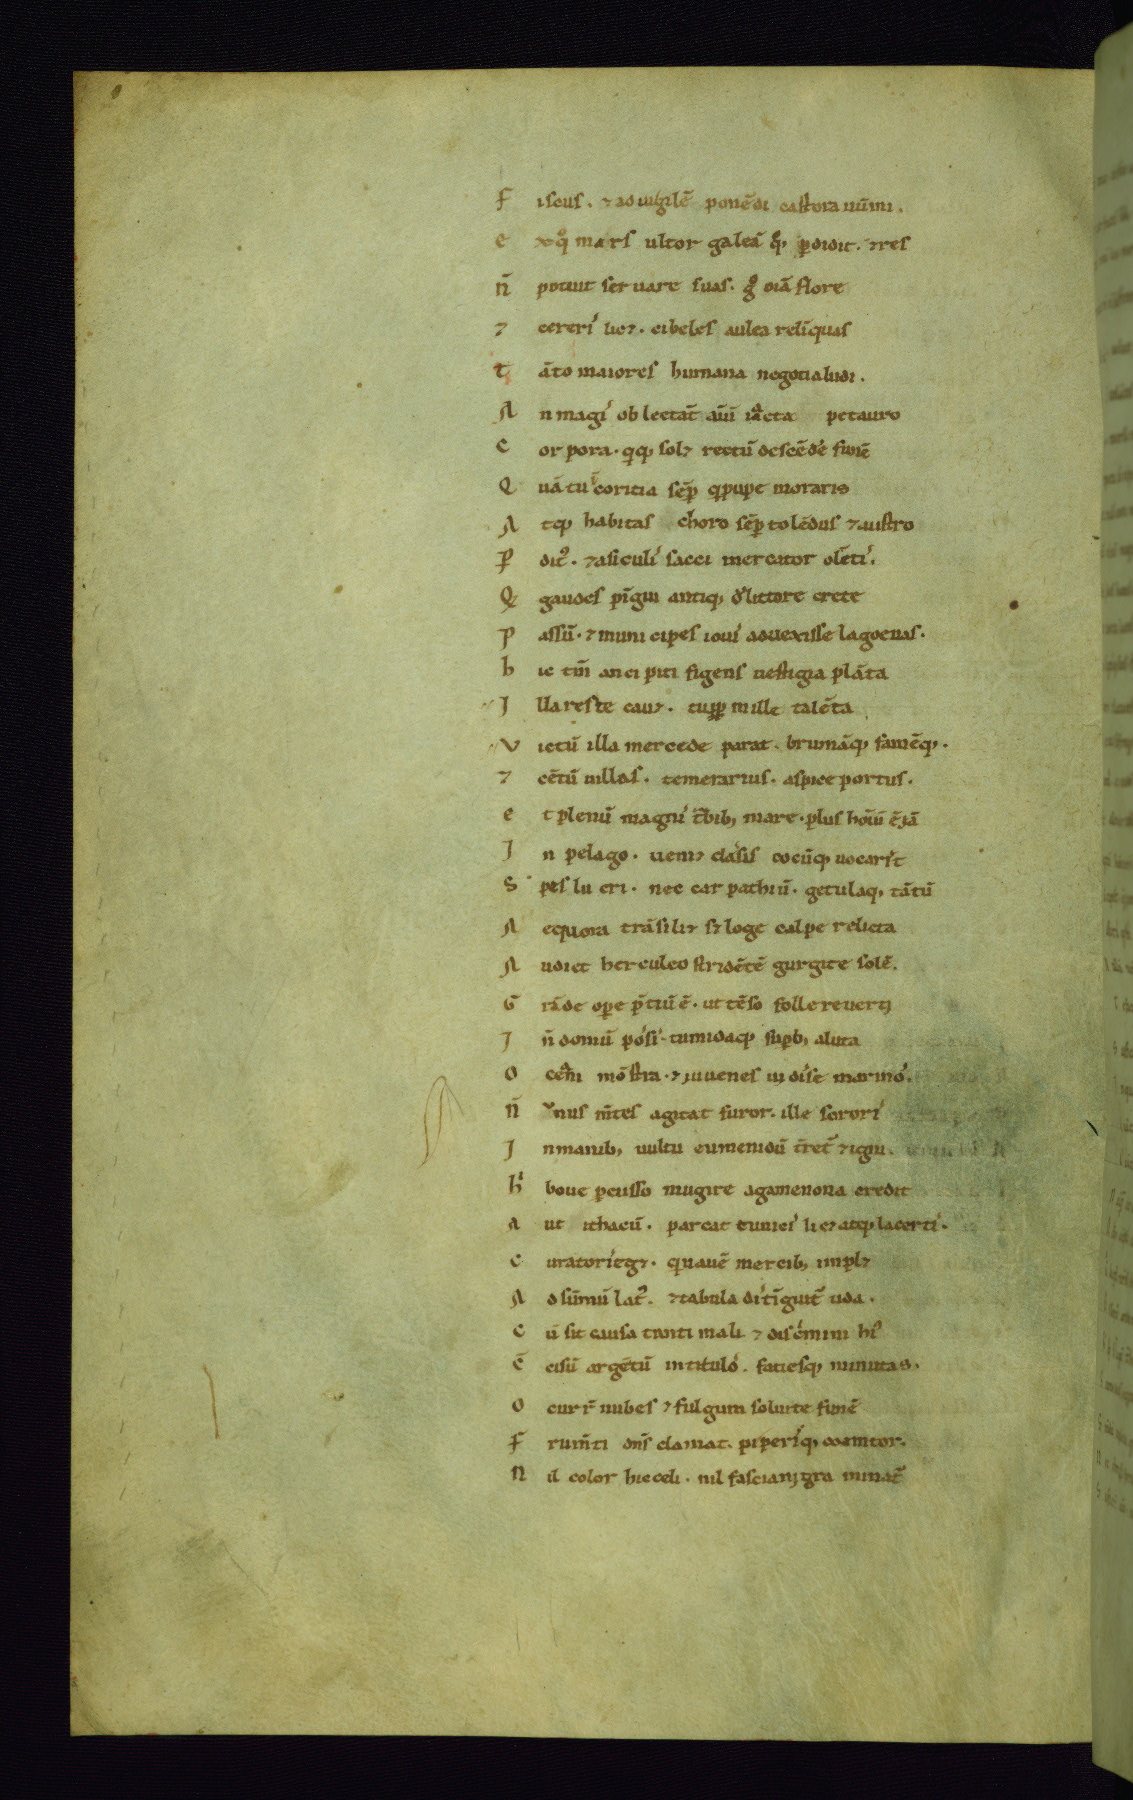 F iscus. ⁊ ad uigilē ponēdi castora nūmi.
E xq̊ mars ultor galeā q̊q, ꝑdidit. ⁊ res
N̄ potuit seruare suas. gͦ oīa flore
⁊ cererī lic⁊. cibeles aulea relīquas
T āto maiores humana negotia ludi.
A n magi' oblectāt aīm iacta petauro
C orpora. qiq, sol⁊ rectū descēde' funē
Q uā tu coricia sēp qi pupe moraris
A tq, habitas choro sēp tolēdus ⁊ austro
P̄ dit'. ⁊ a siculi' sacci mercator olēti'.
Q gaudes pīgui antiq, d' littore crete
P assū. ⁊ municipes ioui' aduexisse lagoenas.
H ic tm̄ ancipiti figens uestigia plāta
I lla reste cau⁊. tu ꝓpt mille talēta
V ictū illa mercede parat. brumāq, famēq,.
⁊ cētū uillas. temerarius. aspice portus.
E t plenū magni' t̄bib, mare. plus hoīū ē iā
I n pelago. ueni⁊ clas̄sis q̄cūq, uocarit
S pes lucri. nec carpathiū. getulaq, tātū
A equora trāsili⁊ s⁊ loge calpe relicta
A udiet herculeo stridētē gurgite solē.
G rāde ope p̄tiū ē. ut tēso folle reuerti
I n̄ domū pos̄si' tumidaq, sup̄b, aluta
O ceāi mōstra. ⁊ iuuenes uidis̄se marino'.
N̄ unus m̄tes agitat furor. ille sorori'
I n manib, uultu eumenidū t̄ret̄ ⁊ igni.
H' boue pcusso mugire agamenona credit
A ut ithacū. parcat tunici' lic⁊ atq, lacerti'.
C uratori' eg⁊. qi nauē mercib, impl⁊
A d sūmū lat'. ⁊ tabula distīguit̄ uda.
C ū sit causa tanti mali ⁊ disc̄mini hi'
C̄ cisū argētū in titulo'. faciesq, minutas.
O ccurr̄ nubes ⁊ fulgura soluite funē
F rum̄ti dn̄s clamat. piperi'q, coemtor.
N il color hic celi. nil fascia nigra minat̄